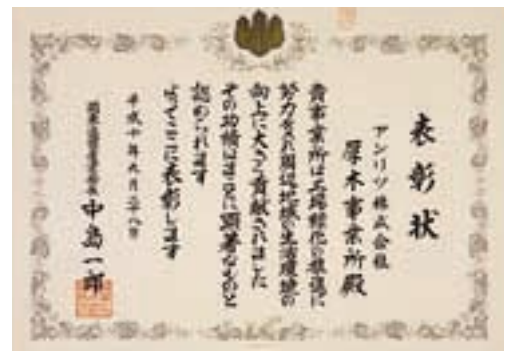 表彰状
アンリツ株式会社
厚木事業所殿
貴事業所は工場緑化の推進に
努力され周辺地域の生活環境の
向上に大きく貢献されました
その功績はまことに顕著なものと
認められます
よってここに表彰します
平成十年九月二十八日
関東通商産業局長
中島一郎